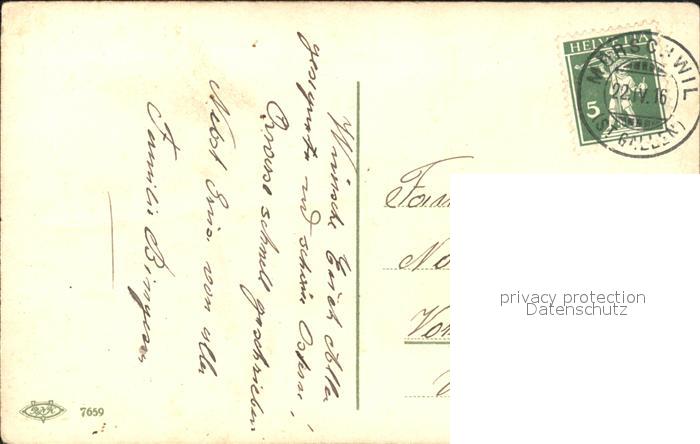 Wünsche Euch Allen
gesegnete und schöne Ostern!
schnell geschrieben
Nebst Grüs. von allen
Familie
Fam
No
HELVETIA
5
MÖRSCHWIL
22.IV.16
(ST. GALLEN)
privacy protection
Datenschutz
7659